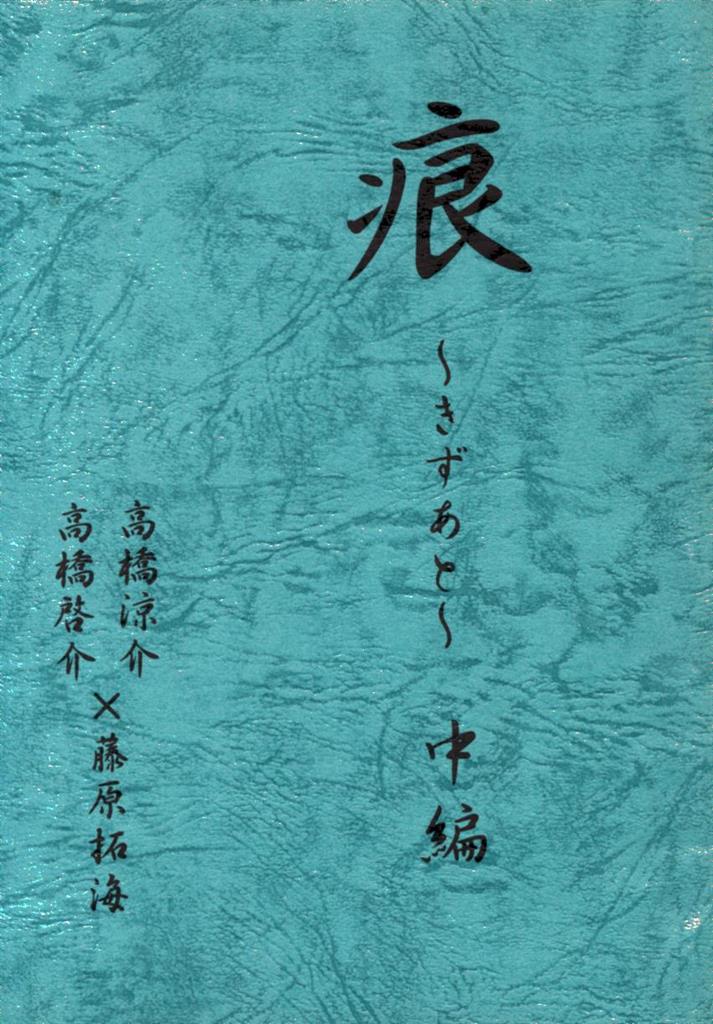 痕
～きずあと～
中編
高橋涼介
高橋啓介
×藤原拓海